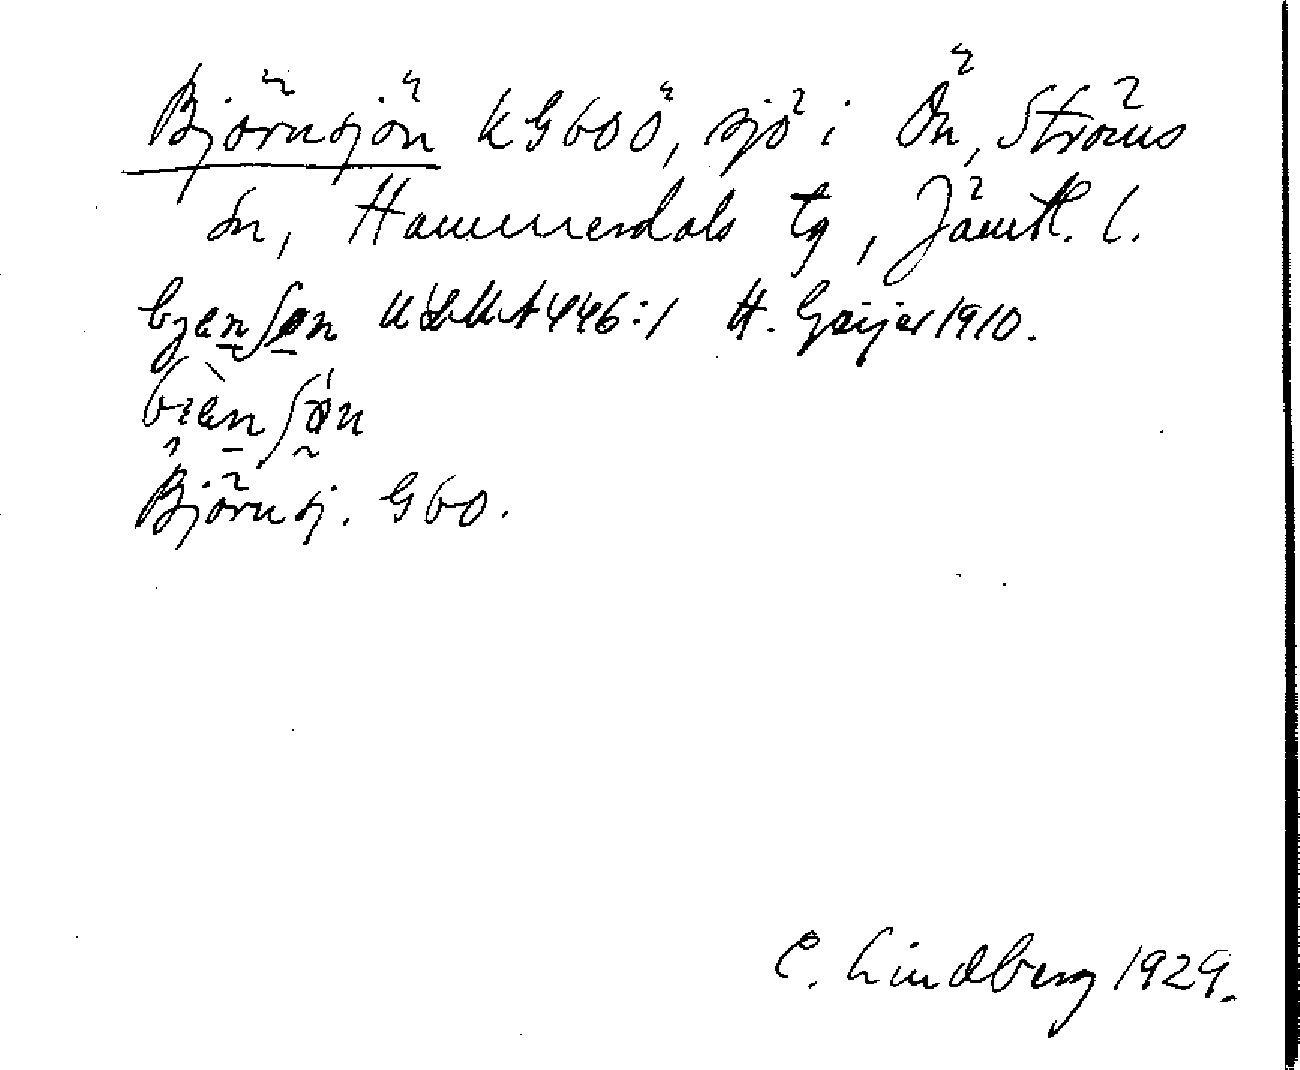 Björnsjön KG60Ö, sjö i Ön, Ströms
sn, Hammerdals tg, Jämtl. l.
bjenʃøn ULMA 446:1 H. Geijer 1910.
Björnsj. G60.
C. Lindberg 1929.